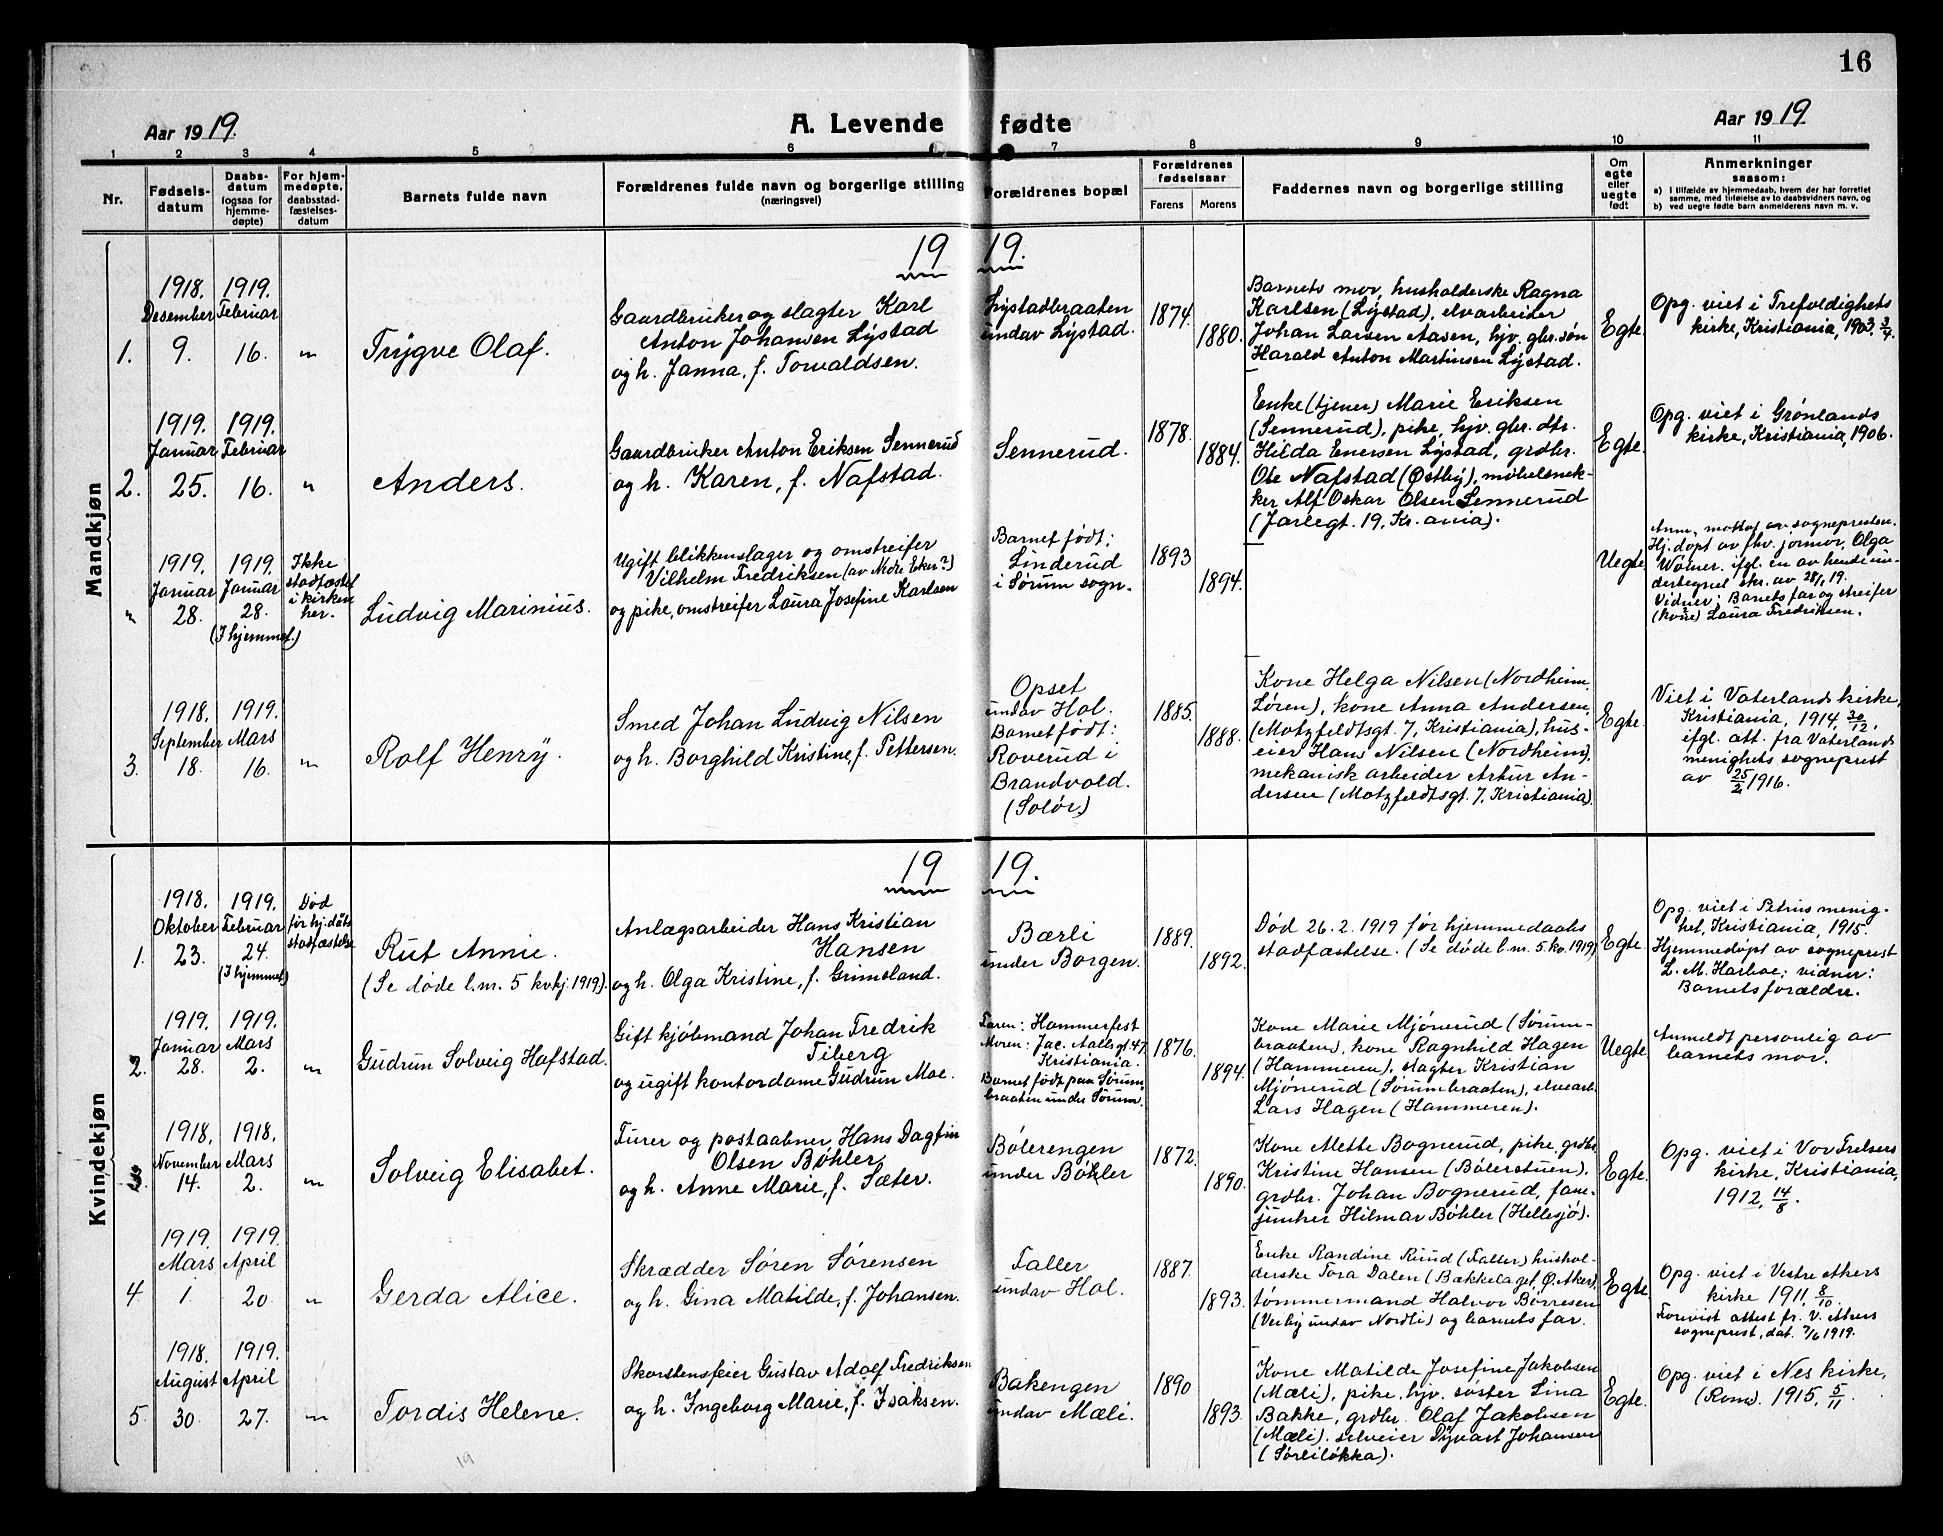 16
Aar 1919.
A. Levende fødte
Aar 1919
1 2 3 4 5 6 7 8 9 10 11
Nr.
Fødsels-
datum
Daabs-
datum
(ogsaa for
hjemme-
døpte)
For hjem-
medøpte,
daabsstad-
fæstelses-
datum
Barnets fulde navn
Forældrenes fulde navn og borgerlige stilling
(næringsvei)
Forældrenes bopæl
Forældrenes
fødselsaar
Farens
Morens
Faddernes navn og borgerlige stilling
Om
ægte
eller
uegte
født
Anmerkninger
saasom:
a) i tilfælde av hjemmedaab, hvem der har forrettet
samme, med tilføielse av to daabsvidners navn, og
b) ved uegte fødte barn anmelderens navn m. v.
Mandkjøn
19 19.
1.
1918.
Desember
9.
1919.
Februar
16.
"
Trygve Olaf.
Gaardbruker og slagter Karl
Anton Johansen Lystad
og h. Janna, f. Torvaldsen.
Lystadbraaten
undav Lystad.
1874.
1880.
Barnets mor, husholderske Ragna
Karlsen (Lystad), elvarbeider
Johan Larsen Aasen, hjv. gbr. søn
Harald Anton Martinsen Lystad.
Egte.
Opg. viet i Trefoldighets
kirke, Kristiania, 1903, 3/4.
2.
1919.
Januar
25.
1919.
Februar
16.
"
Anders.
Gaardbruker Anton Eriksen Sennerud
og h. Karen, f. Nafstad.
Sennerud.
1878.
1884.
Enke (tjener) Marie Eriksen
(Sennerud), pike, hjv. gbr. dtr.
Hilda Enersen Lystad, grdbr.
Ole Nafstad (Østby), møbelsnek-
ker Alf Oskar Olsen Sennerud
(Jarlegt. 19, Kr.ania).
Egte.
Opg. viet i Grønlands
kirke, Kristiania, 1906.
"
1919.
Januar
28.
1919.
Januar
28.
(I hjemmet.)
Ikke
stadfæstet
i kirken
her.
Ludvig Marinius.
Ugift blikkenslager og omstreifer
Vilhelm Fredriksen (av Nedre Eker?)
og pike, omstreifer Laura Josefine Karlsen
Barnet født:
Linderud
i Sørum sogn.
1893
1894.
Uegte
Anm. mottat av sognepresten.
Hj.døpt av fhv. jormor, Olga
Wømer, ifgl. en av hende un-
dertegnet skr. av 28/1 19.
Vidner: Barnets far og streifer
(kone) Laura Fredriksen.
3.
1918.
September
18.
1919.
Mars
16.
"
Rolf Henry.
Smed Johan Ludvig Nilsen
og h. Borghild Kristine, f. Pettersen.
Opset
undav Hol.
Barnet født:
Roverud i
Brandvold.
(Solør.)
1885.
1888.
Kone Helga Nilsen (Nordheim,
Løren), kone Anna Andersen,
(Motzfeldtsgt. 7, Kristiania), hus-
eier Hans Nilsen (Nordheim),
mekanisk arbeider Artur An-
dersen (Motzfeldtsgt. 7, Kristiania).
Egte.
Viet i Vaterlands kirke,
Kristiania, 1914, 30/12,
ifgl. att. fra Vaterlands
menighets sogneprest
av 25/2 1916.
Kvindekjøn
19 19.
1.
1918.
Oktober
23.
1919.
Februar
24.
(I hjemmet)
Død
før hj.døbts
stadfæstelse
Rut Annie.
(Se døde l.nr. 5 kvkj. 1919).
Anlægsarbeider Hans Kristian
Hansen
og h. Olga Kristine, f. Grimsland.
Bærli
under Borgen.
1889.
1892.
Død 26.2.1919 før hjemmedaabs
stadfæstelse. (Se døde l.nr. 5 kv. 1919)
Egte.
Opg. viet i Petrus menig-
het, Kristiania, 1915.
Hjemmedøpt av sogneprest
L. M. Harboe; vidner:
Barnets forældre.
2.
1919.
Januar
28.
1919.
Mars
2.
"
Gudrun Solveig Hafstad.
Gift kjøbmand Johan Fredrik
Fiberg
og ugift kontordame Gudrun Moe.
Faren: Hammerfest
Moren: Jac. Aallsgt. 47,
Kristiania.
Barnet født paa Sørum-
braaten under Sørum.
1876.
1894.
Kone Marie Mjønerud (Sørum-
braaten), kone Ragnhild Hagen
(Hammeren), slagter Kristian
Mjønerud (Sørumbraaten), elvearb.
Lars Hagen (Hammeren).
Uegte.
Anmeldt personlig av
barnets mor.
3.
1918.
November
14.
1918.
Mars
2.
"
Solveig Elisabet.
Furer og postaabner Hans Dagfin
Olsen Bøhler
og h. Anne Marie, f. Sæter.
Bølerengen
under Bøhler
1872.
1890.
Kone Mette Bognerud, pike, grdbr.
Kristine Hansen (Bølerstuen),
grdbr. Johan Bognerud, fane-
junker Hilmar Bøhler (Hellesjø).
Egte.
Opg. viet i Vor Frelsers
kirke, Kristiania,
1912, 14/8.
4.
1919.
Mars
1.
1919.
April
20.
"
Gerda Alice.
Skrædder Søren Sørensen
og h. Gina Matilde, f. Johansen.
Faller
undav Hol.
1887.
1893.
Enke Randine Ruud (Faller) hushol-
derske Tora Dalen (Bækkelaget, Ø. Aker),
tømmermand Halvor Børresen
(Verby undav Nordli) og barnets far.
Egte.
Opg. viet i Vestre Akers
kirke 1911, 8/10.
Forevist attest fr. V. Akers
sogneprest, dat. 7/6 1919.
5.
1918.
August
30.
1919.
April
27.
"
Tordis Helene.
Skorstensfeier Gustav Adolf Fredriksen
og h. Ingeborg Marie, f. Isaksen.
Bakengen
undav Mæli.
1890
1893.
Kone Matilde Josefine Jakobsen
(Mæli), pike, hjv. søster Lina
Bakke, grdbr. Olaf Jakobsen
(Mæli). selveier Dyvart Johansen
(Sørliløkka).
Egte.
Opg. viet i Nes kirke,
(Rome). 1915, 5/11
19